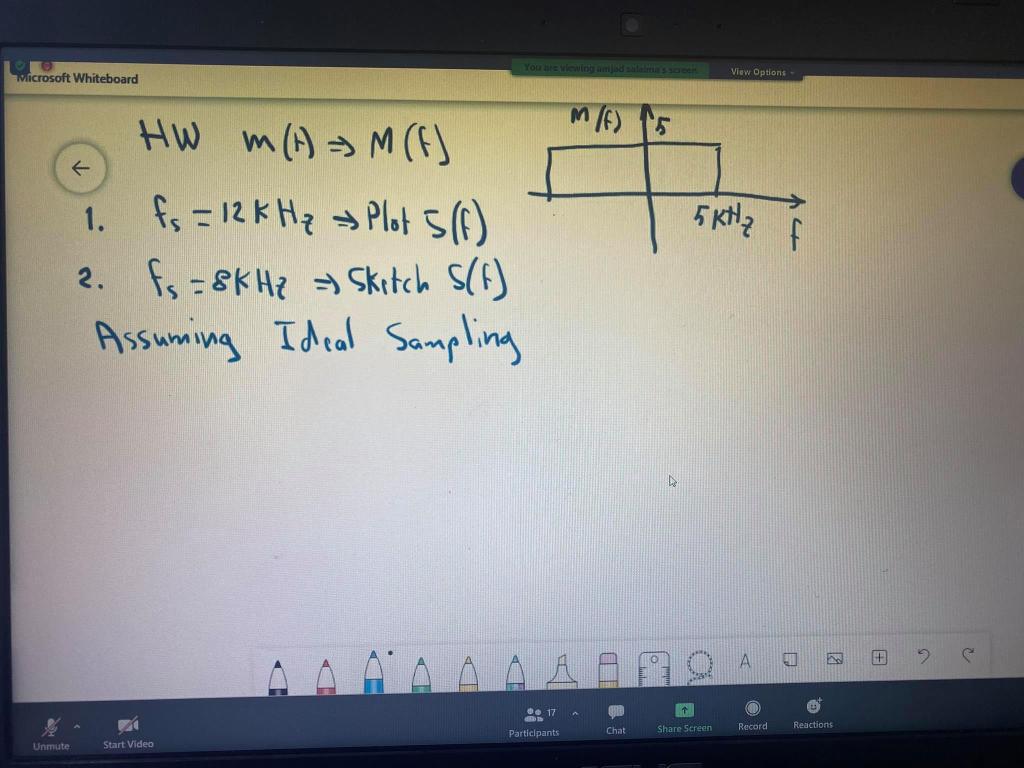 You are viewing amjad salaima's screen
View Options
Microsoft Whiteboard
HW m(t) ⇒ M(f)
M(f) 5
5 kHz f
1. fs = 12 kHz ⇒ Plot S(f)
2. fs = 8 kHz ⇒ Sketch S(f)
Assuming Ideal Sampling
A
Unmute
Start Video
17
Participants
Chat
Share Screen
Record
Reactions